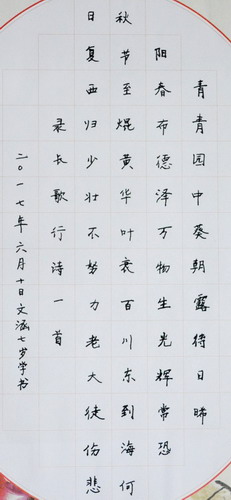 青青园中葵朝露待日晞
阳春布德泽万物生光辉常恐
秋节至焜黄华叶衰百川东到海何
日复西归少壮不努力老大徒伤悲
录长歌行诗一首
二〇一七年六月十日文涵七岁学书